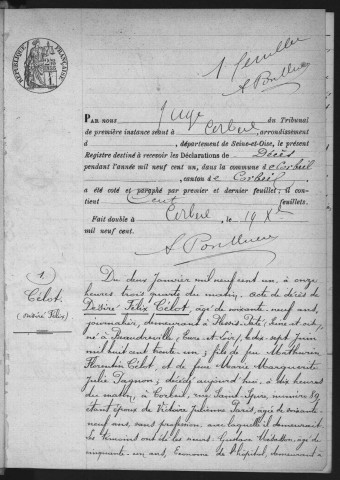 RÉPUBLIQUE FRANÇAISE
1er feuillet
PAR NOUS Juge du Tribunal
de première instance séant à Corbeil, arrondissement
d , département de Seine-et-Oise, le présent
Registre destiné à recevoir les Déclarations de Décès
pendant l'année mil neuf cent un, dans la commune de Corbeil
, canton de Corbeil
a été coté et paraphé par premier et dernier feuillet; il contient
Cent feuillets.
Fait double à Corbeil, le 19 Xbre
mil neuf cent.
1
Célot
(Désiré Félix)
Du deux Janvier mil neuf cent un, à onze
heures trois quarts du matin, acte de décès de
Désiré Félix Célot, âgé de soixante neuf ans,
journalier, demeurant à Plessis-Pâté, Seine et Oise,
né à Beaudreville, Eure et Loir, le dix sept Juin
mil huit cent trente un; fils de feu Mathurin
Florentin Célot, et de feue Marie Marguerite
Julie Pagnon; décédé aujourd'hui, à six heures
du matin, à Corbeil, rue Saint Spire, numéro 89,
étant époux de Victoire Julienne Paris, âgée de soixante-
neuf ans, sans profession, avec laquelle il demeurait.
Les témoins ont été les sieurs: Gustave âgé de
cinquante un ans, Econome de l'hôpital, demeurant à